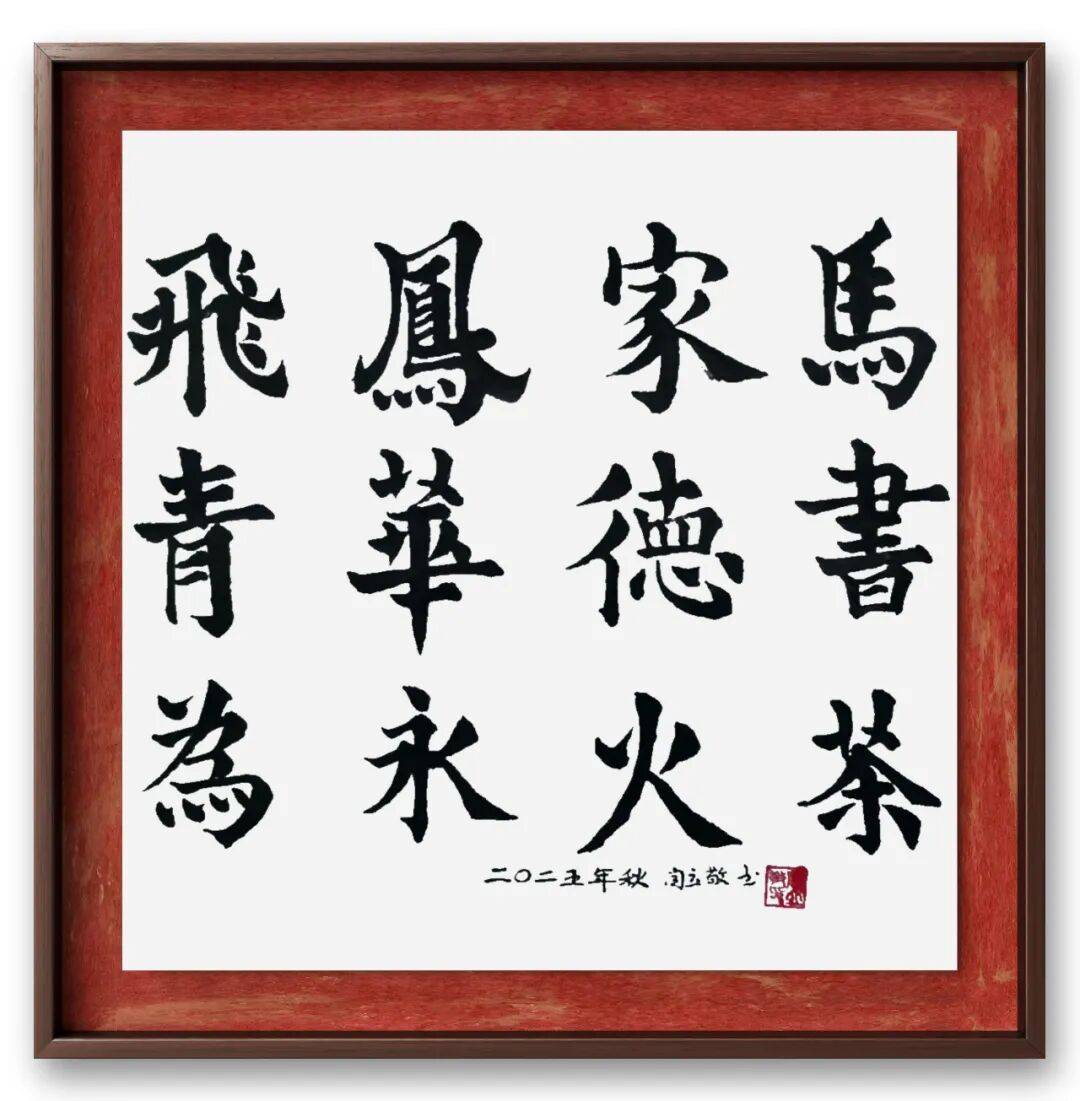 馬書茶
家德火
鳳華永
飛青為
二〇二五年秋 敬书